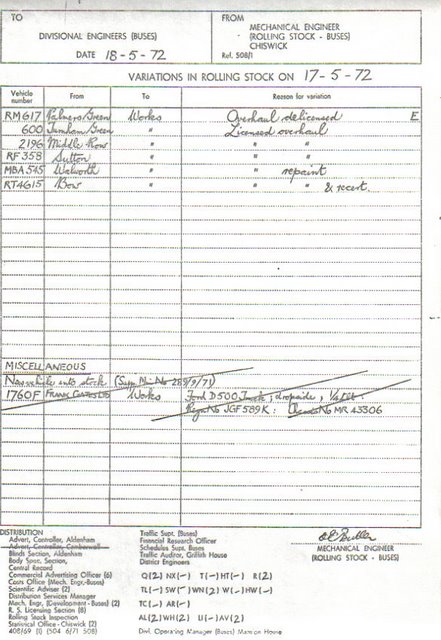 TO
DIVISIONAL ENGINEERS (BUSES)
DATE 18-5-72
FROM
MECHANICAL ENGINEER
(ROLLING STOCK - BUSES)
CHISWICK
Ref. 508/1
VARIATIONS IN ROLLING STOCK ON 17-5-72
Vehicle number From To Reason for variation
RM617 Palmers Green Works Overhaul delicensed E
600 Turnham Green " Licensed overhaul
2196 Middle Row " " "
RF358 Sutton " " "
MBA545 Walworth " " repaint
RT4615 Bow " " " & recert.
MISCELLANEOUS
New vehicle into stock (Supp. Min No 289/9/71)
1760F Works Ford D500 Truck, dropside,
Regn No JGF589K: Chassis No MR 43306
DISTRIBUTION
Advert, Controller, Aldenham
Advert, Controller, Camberwell
Blinds Section, Aldenham
Body Spec, Section,
Central Record
Commercial Advertising Officer (6)
Costs Office (Mech. Engr.-Buses)
Scientific Adviser (2)
Distribution Services Manager
Mech. Engr, (Development-Buses) (2)
R. S. Licensing Section (8)
Rolling Stock Inspection
Statistical Office - Chiswick (2)
408/69 (1) (504 6/71 508)
Traffic Supt. (Buses)
Financial Research Officer
Schedules Supt. Buses
Traffic Auditor, Griffith House
District Engineers
Q(2) NX(-) T(-) HT(-) R(2)
TL(-) SW(-) WN(2) W(-) HW(-)
TC(-) AR(-)
AL(2) WH(2) U(-) AV(2)
Divl. Operating Manager (Buses) Manson House
MECHANICAL ENGINEER
(ROLLING STOCK - BUSES)